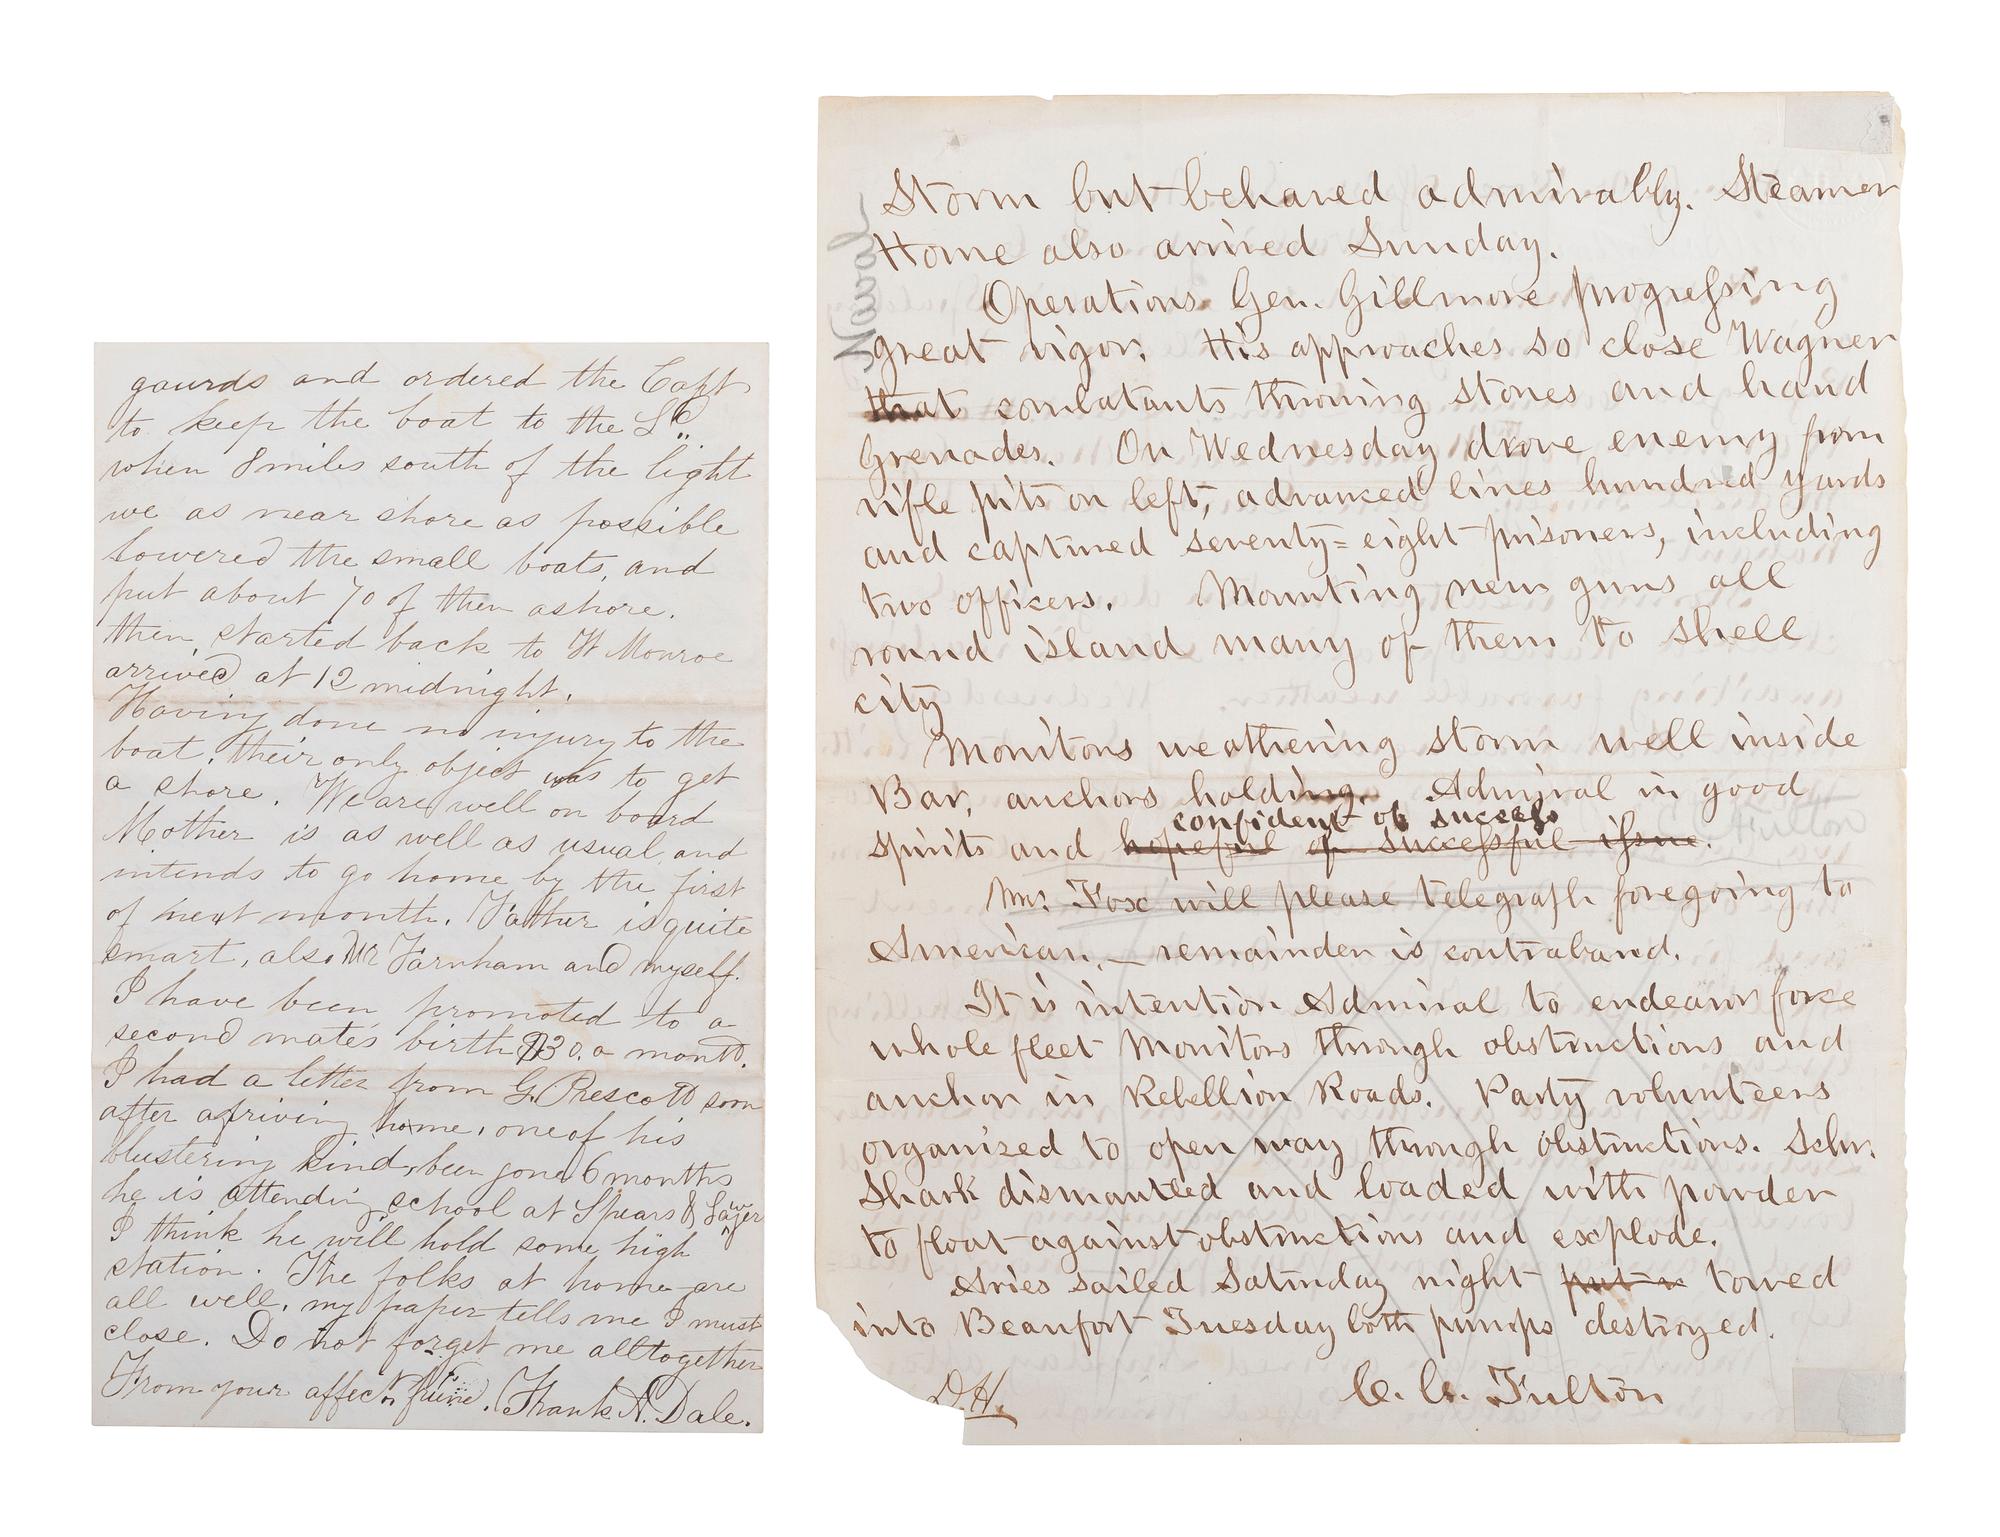 gaurds and ordered the Capt
to keep the boat to the Sd
when 8 miles south of the light
we as near shore as possible
lowered the small boats, and
put about 70 of them ashore.
then started back to Ft Monroe
arrived at 12 midnight.
Having done no injury to the
boat. their only object was to get
a shore. We are well on board
Mother is as well as usual and
intends to go home by the first
of next month. Father is quite
smart, also Mr Farnham and myself.
I have been promoted to a
second mate's birth $30. a month.
I had a letter from G. Prescott soon
after afriving home, one of his
blustering kind, been gone 6 months
he is attending school at Spears & Sawyer
I think he will hold some high
station. The folks at home are
all well. my paper tells me I must
close. Do not forget me alltogether
From your affect. friend. Frank A. Dale.
Naval
Storm but behaved admirably. Steamer
Home also arrived Sunday.
Operations Gen. Gillmore progressing
great vigor. His approaches so close Wagner
that combatants throwing stones and hand
Grenades. On Wednesday drove enemy from
rifle pits on left, advanced lines hundred yards
and captured seventy=eight prisoners, including
two officers. Mounting new guns all
round island many of them to shell
city
Monitors weathering storm well inside
Bar, anchors holding. Admiral in good
confident of success
spirits and hopeful of successful issue.
Mr. Fox will please telegraph foregoing to
American, — remainder is contraband.
It is intention Admiral to endeavor force
whole fleet Monitors through obstructions and
anchor in Rebellion Roads. Party volunteers
organized to open way through obstructions. Schr.
Shark dismantled and loaded with powder
to float against obstructions and explode.
Aries sailed Saturday night put in towed
into Beaufort Tuesday both pumps destroyed.
C. C. Fulton
D.H.